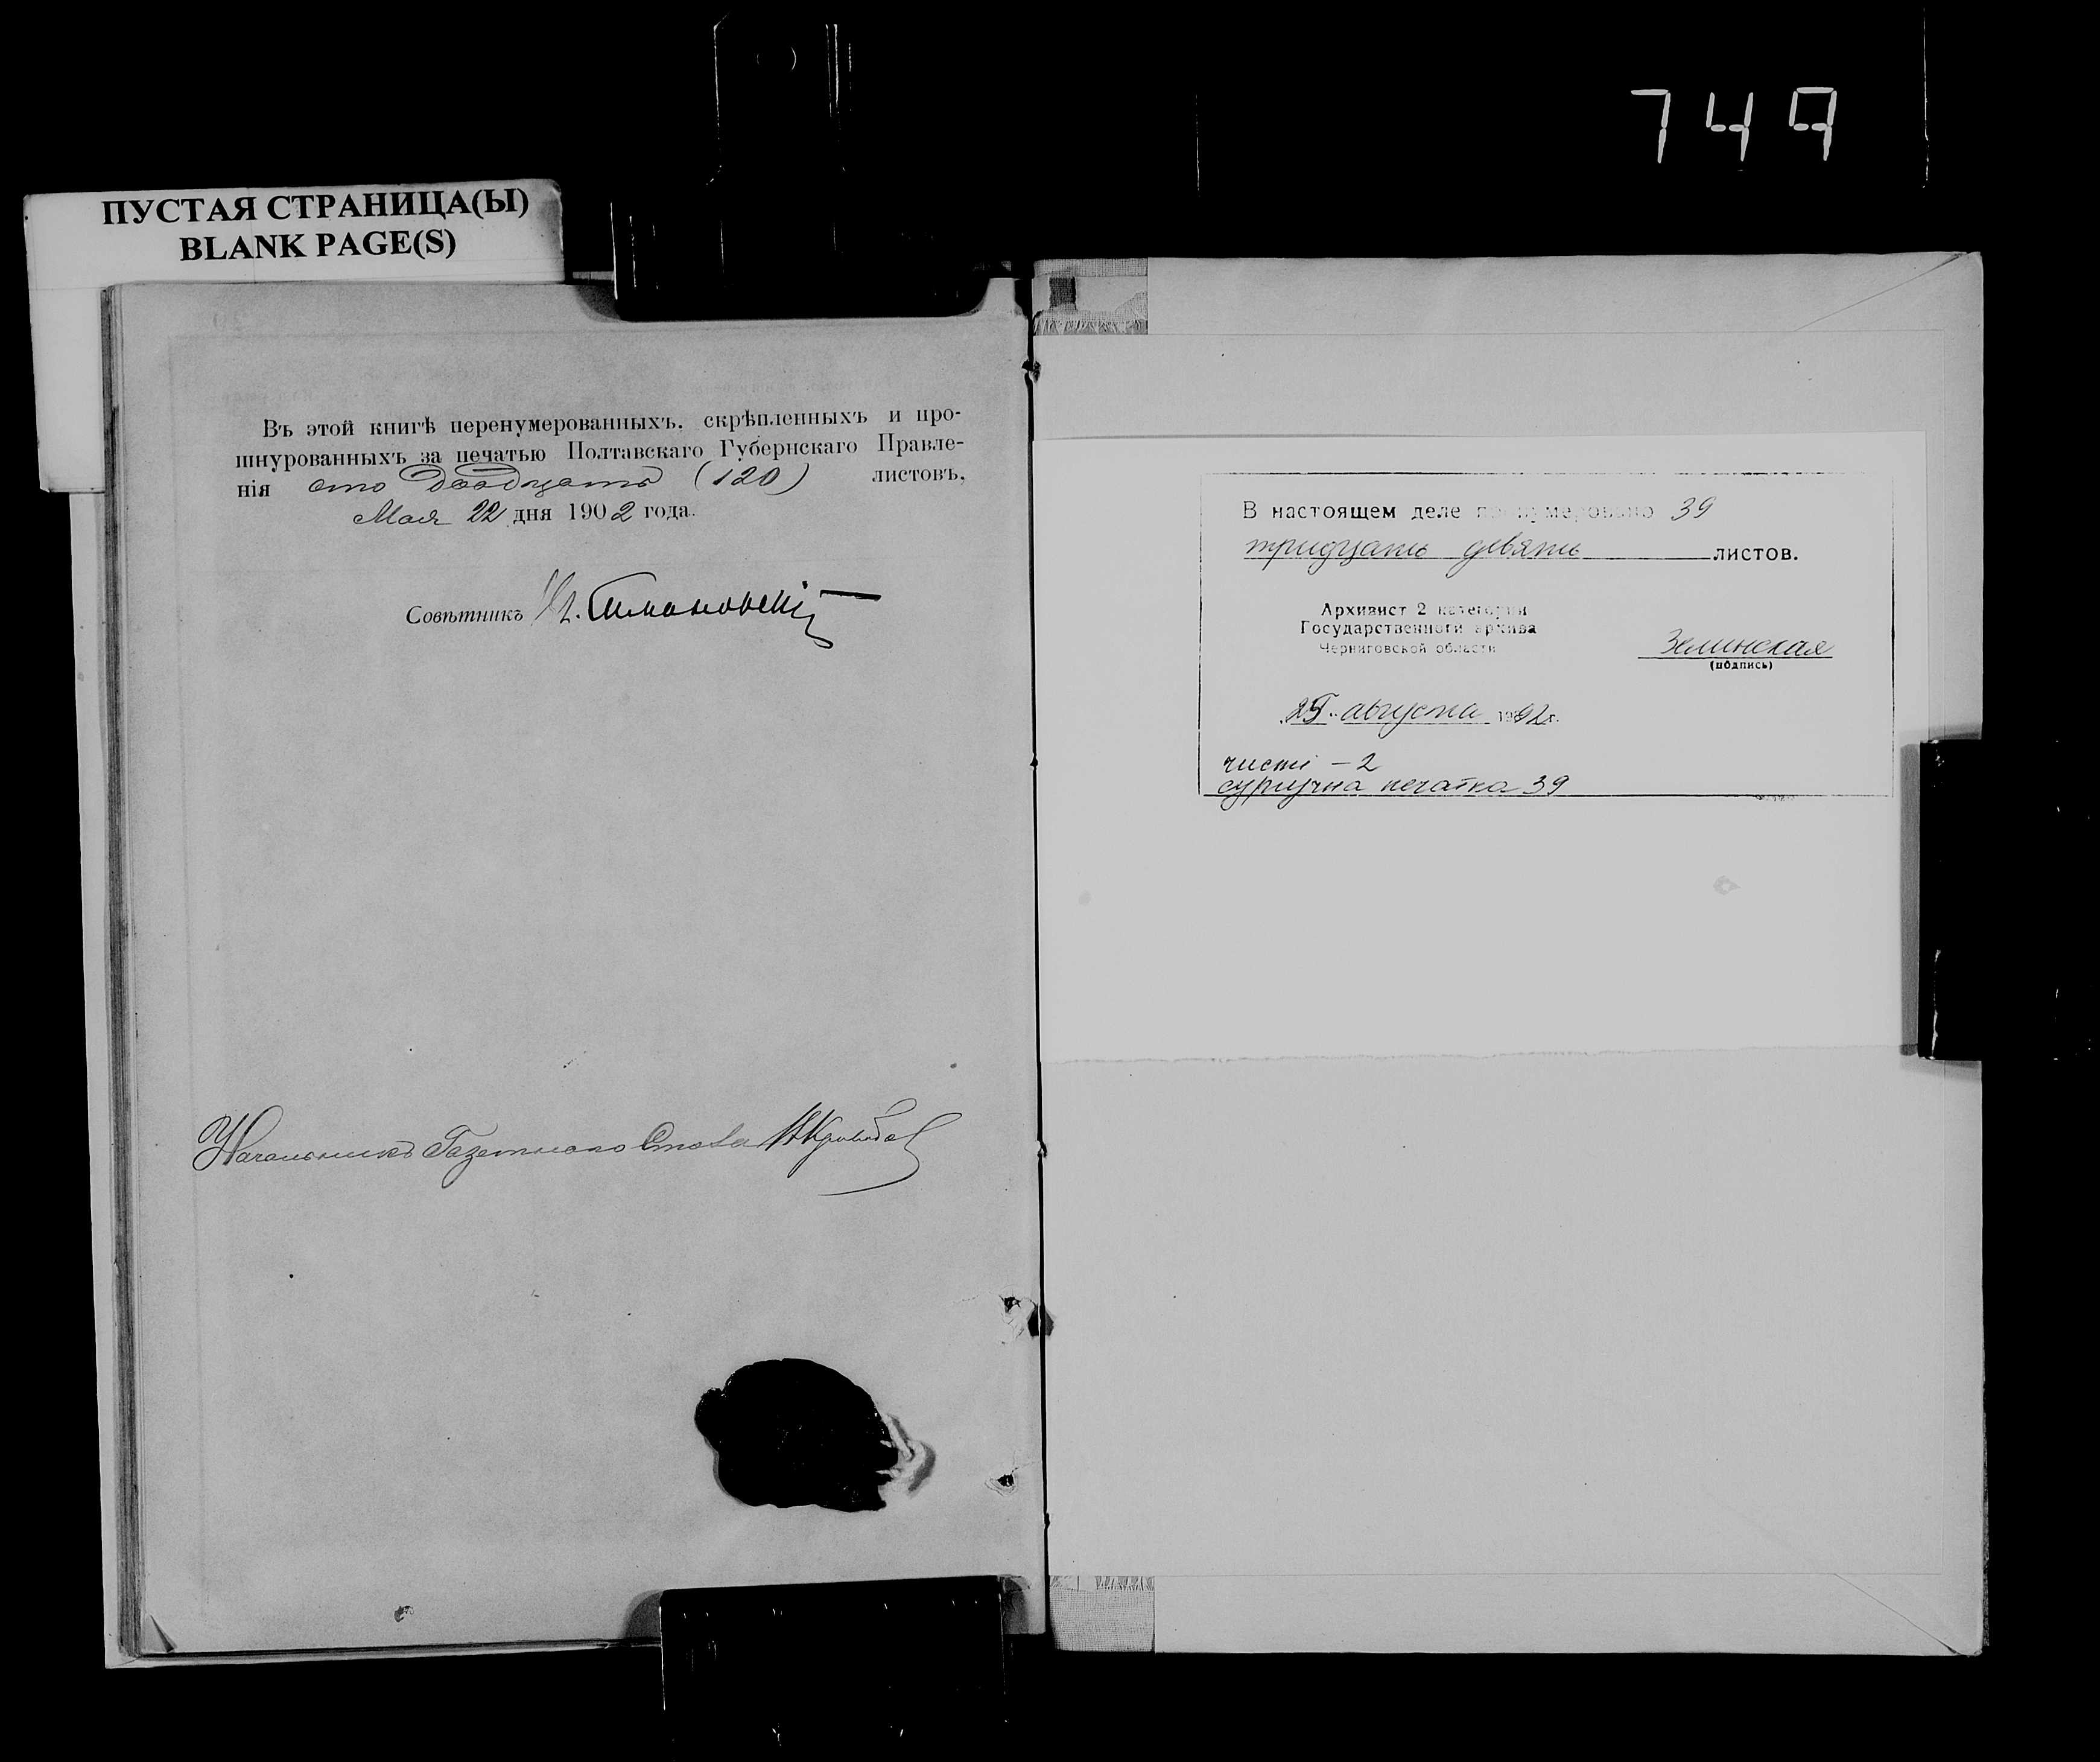 749
ПУСТАЯ СТРАНИЦА(Ы)
BLANK PAGE(S)
Въ этой книгѣ перенумерованныхъ, скрѣпленныхъ и про-
шнурованныхъ за печатью Полтавскаго Губернскаго Правле-
нія сто двадцать (120) листовъ,
Мая 22 дня 1902 года.
Совѣтникъ
Начальникъ Газетнаго Стола
В настоящем деле пронумеровано 39
тридцать девять листов.
Архивист 2 категории
Государственного архива
Черниговской области
Зелинская
(подпись)
25 августа 1992г.
чисті - 2
сургучна печатка 39